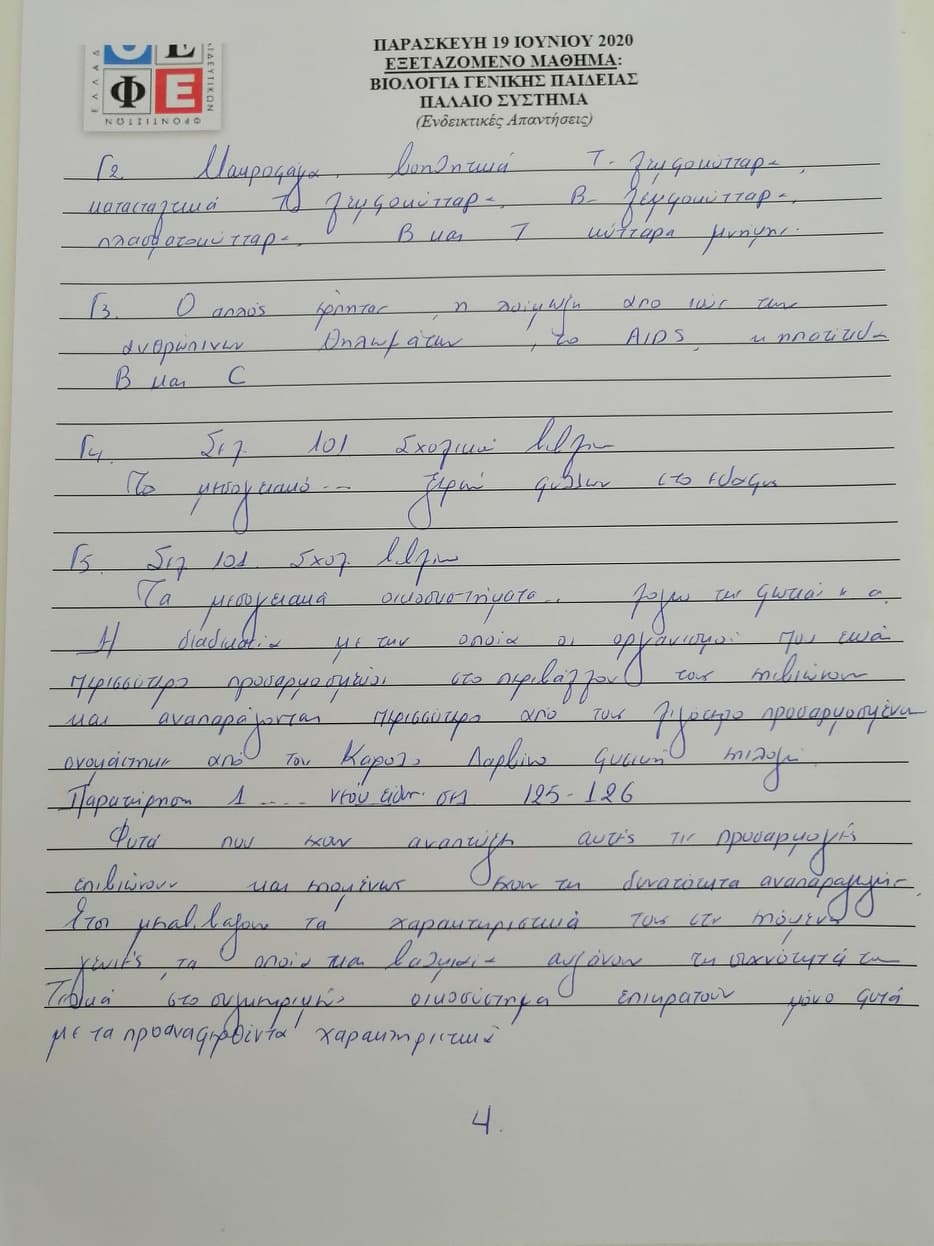 ΕΛΛΑΔ
ΙΔΕΥΤΙΚΩΝ
Θ Ε
Φ Ε
ΦΡΟΝΤΙΣΤΩΝ
ΠΑΡΑΣΚΕΥΗ 19 ΙΟΥΝΙΟΥ 2020
ΕΞΕΤΑΖΟΜΕΝΟ ΜΑΘΗΜΑ:
ΒΙΟΛΟΓΙΑ ΓΕΝΙΚΗΣ ΠΑΙΔΕΙΑΣ
ΠΑΛΑΙΟ ΣΥΣΤΗΜΑ
(Ενδεικτικές Απαντήσεις)
Γ2. Μακροφάγα, βοηθητικά Τ- λεμφοκύτταρα,
κατασταλτικά Τ λεμφοκύτταρα, Β- λεμφοκύτταρα,
πλασματοκύτταρα, Β και Τ κύτταρα μνήμης.
Γ3. Ο απλός έρπητας, η λοίμωξη από ιούς των
ανθρώπινων θηλωμάτων, το AIDS, η ηπατίτιδα
Β και C
Γ4. Σελ. 101 Σχολικού βιβλίου
Το μεσογειακό... ξερών φύλλων στο έδαφος
Γ5. Σελ 101. Σχολ βιβλίου
Τα μεσογειακά οικοσυστήματα... λόγω της φωτιάς
Η διαδικασία με την οποία οι οργανισμοί που είναι
περισσότερο προσαρμοσμένοι στο περιβάλλον τους επιβιώνουν
και αναπαράγονται περισσότερο από τους λιγότερο προσαρμοσμένους
ονομάστηκε από τον Κάρολο Δαρβίνο φυσική επιλογή.
Παρατήρηση 1 .... νέου είδους σελ 125-126
Φυτά που έχουν αναπτύξει αυτές τις προσαρμογές
επιβιώνουν και επομένως έχουν τη δυνατότητα αναπαραγωγής.
Έτσι μεταβιβάζουν τα χαρακτηριστικά τους στην επόμενη
γενιά, τα οποία και βαθμιαία αυξάνουν τη συχνότητά των
Τελικά στο συγκεκριμένο οικοσύστημα επικρατούν μόνο φυτά
με τα προαναφερθέντα χαρακτηριστικά
4.